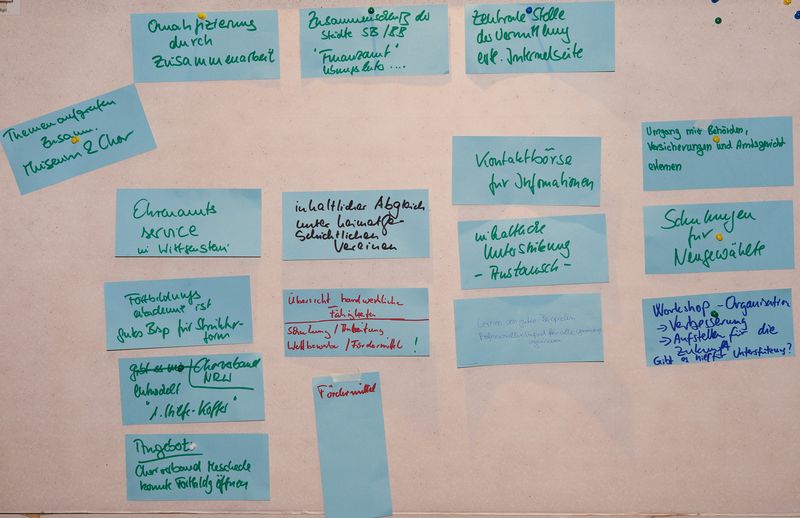 Qualifizierung
durch
Zusammenarbeit
Zusammenschluß der
Städte SB/BB
"Finanzamt"
Übungsleiter....
Zentrale Stelle
der Vermittlung
evtl. Internetseite
Themen aufgreifen
Zusamm.
Museum & Chor
Kontaktbörse
für Informationen
Umgang mit Behörden,
Versicherungen und Amtsgericht
erlernen
Ehrenamts
service
in Wittgenstein
inhaltlicher Abgleich
unter heimatge-
schichtlichen
Vereinen
inhaltliche
Unterstützung
- Austausch -
Schulungen
für
Neugewählte
Fortbildungs
akademie ist
gutes Bsp für Struktur-
form
Übersicht handwerkliche
Fähigkeiten
Schulung / Anleitung
Wettbewerbe / Fördermittel !
Lernen von guten Beispielen
Workshop - Organisation
→ Verbesserung
→ Aufstellen für die
Zukunft
Gibt es hierfür Unterstützung?
gibt es mit Chorverband
NRW
entwickelt
"1. Hilfe-Koffer"
Fördermittel
Angebot:
Chorverband Meschede
könnte Fortbildg öffnen